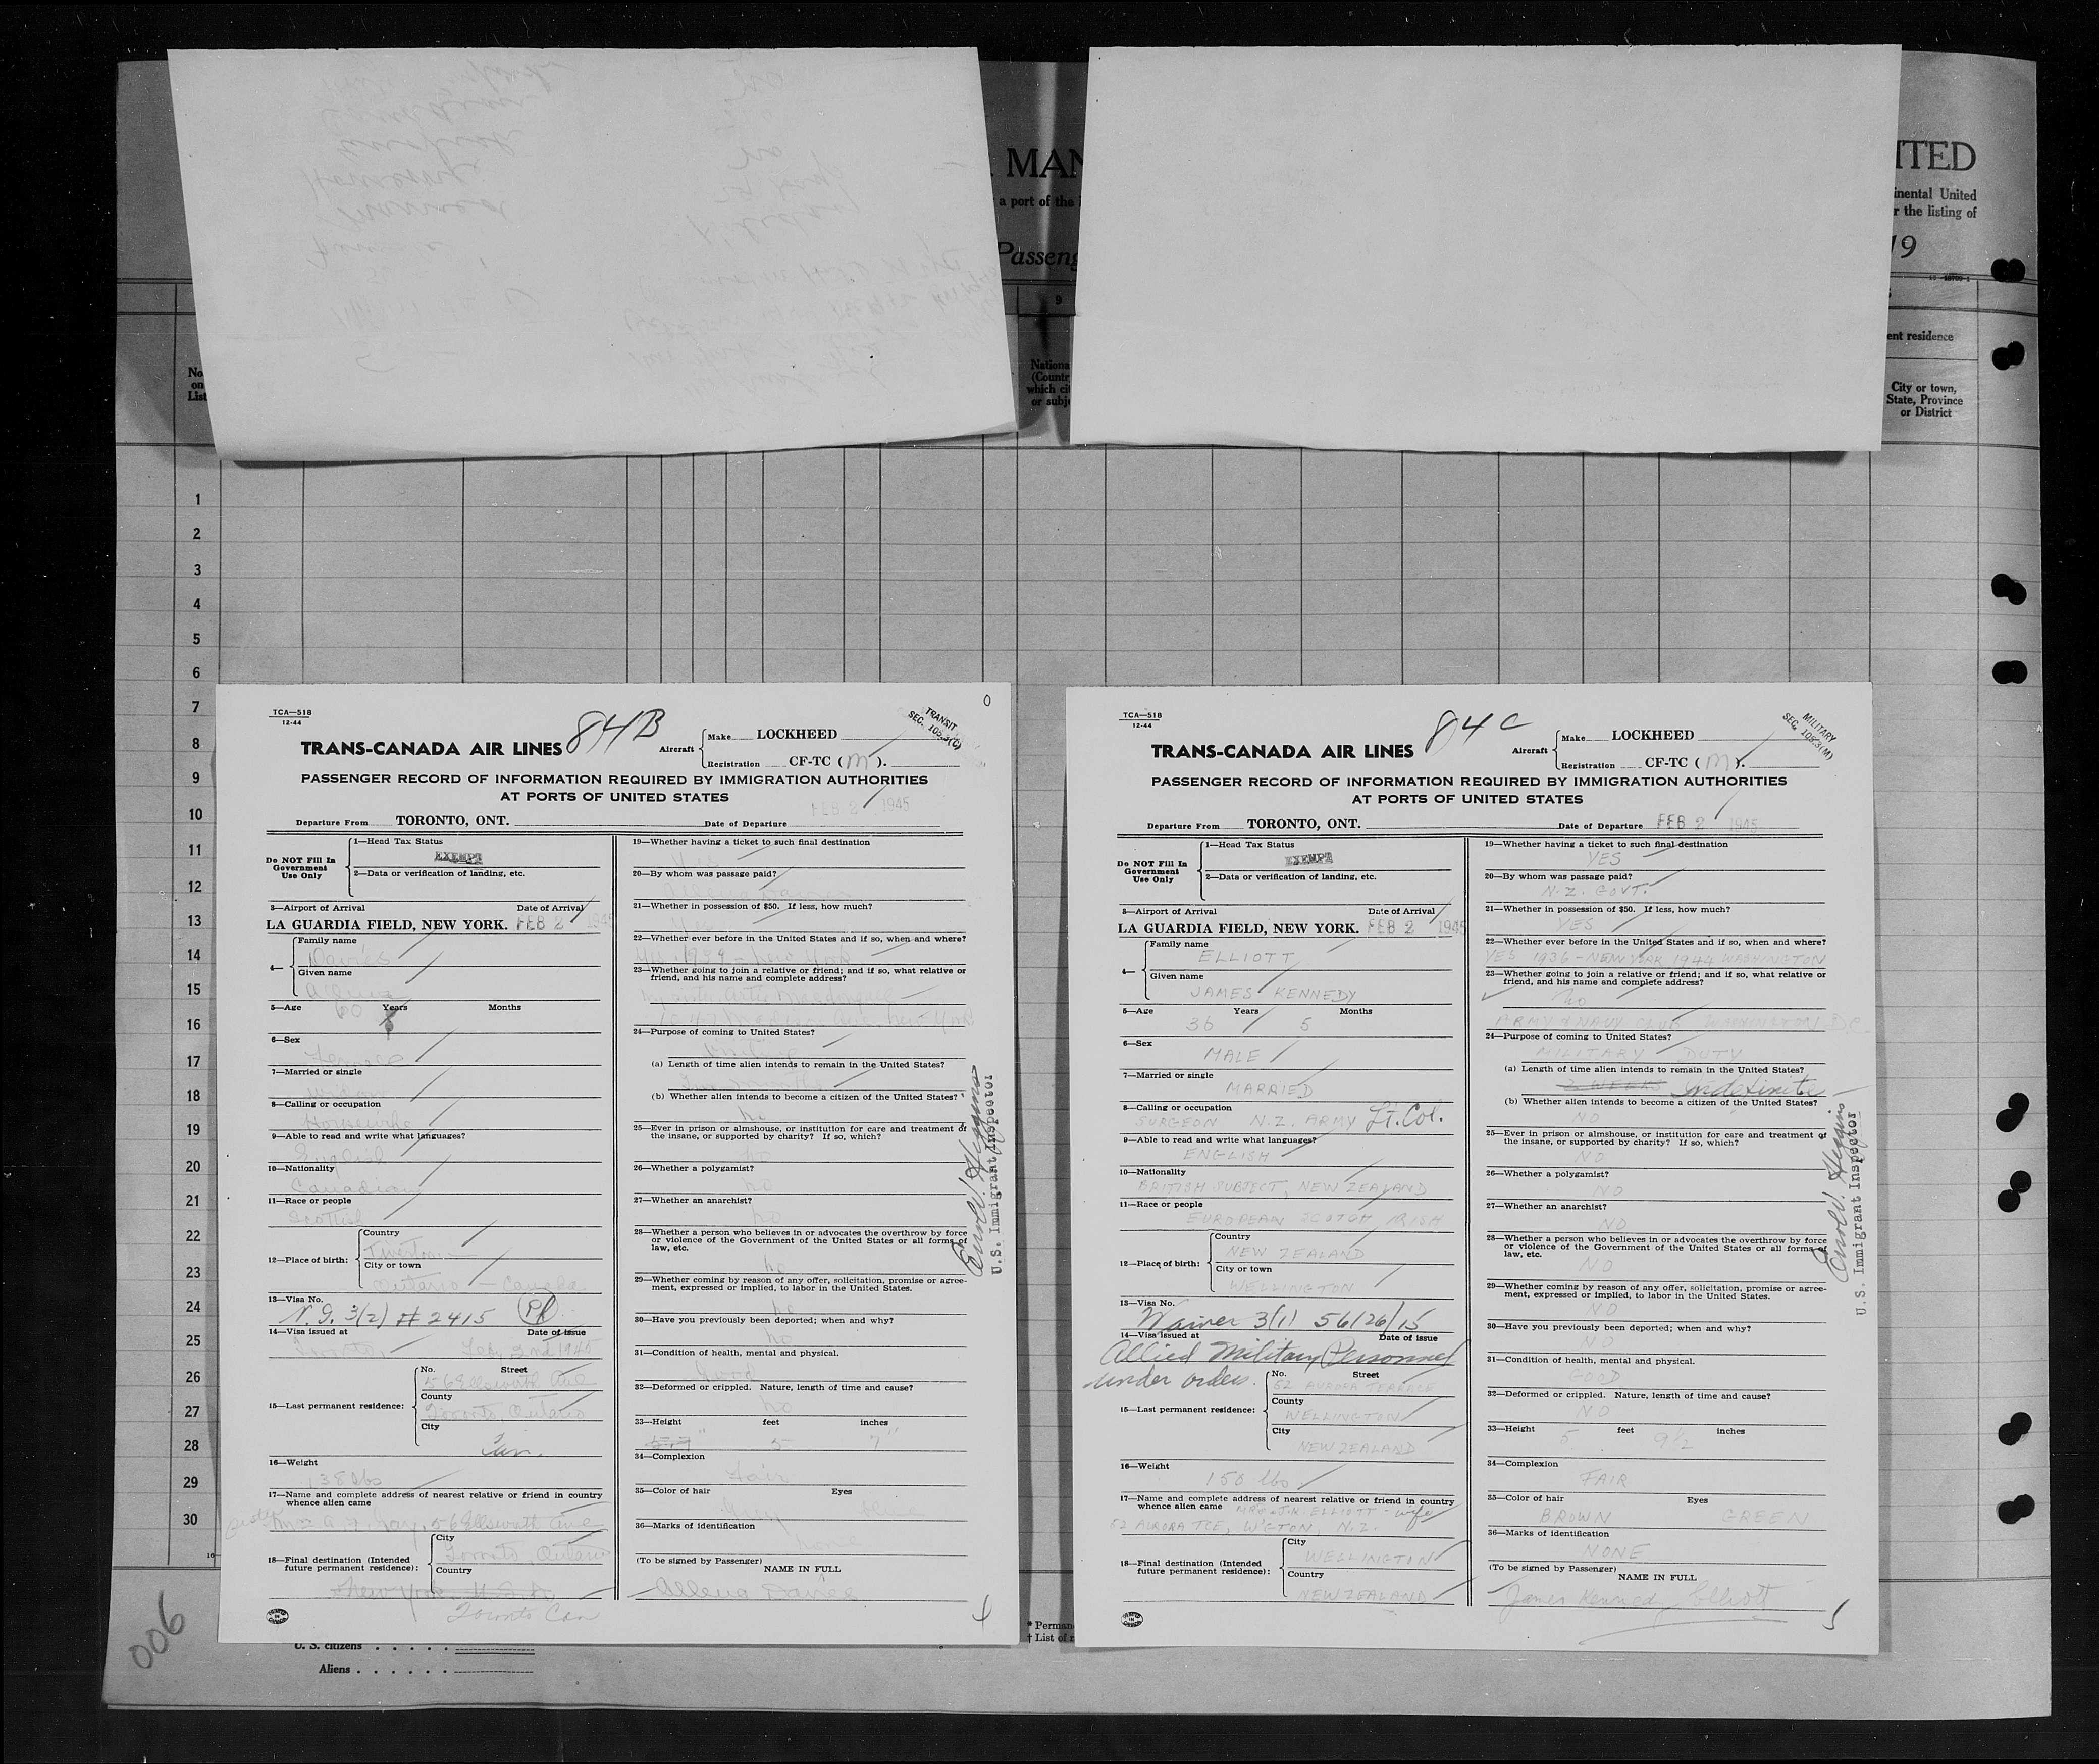 MAN
ITED
a port of the
inental United
r the listing of
Passeng
19
16-10700-1
9
ent residence
No.
on
List
Nationa
(Countr
which cit
or subje
City or town,
State, Province
or District
1
2
3
4
5
6
7
8
9
10
11
12
13
14
15
16
17
18
19
20
21
22
23
24
25
26
27
28
29
30
TCA—518
12-44
84B
TRANSIT
SEC. 105.3(D)
O
TRANS-CANADA AIR LINES
Aircraft
Make LOCKHEED
Registration CF-TC (M).
PASSENGER RECORD OF INFORMATION REQUIRED BY IMMIGRATION AUTHORITIES
AT PORTS OF UNITED STATES
FEB 2 1945
Departure From TORONTO, ONT. Date of Departure
Do NOT Fill In
Government
Use Only
1—Head Tax Status
EXEMPT
2—Data or verification of landing, etc.
3—Airport of Arrival Date of Arrival
LA GUARDIA FIELD, NEW YORK. FEB 2 1945
4—
Family name
Davies
Given name
Allena
5—Age 60 Years Months
6—Sex
Female
7—Married or single
Widow
8—Calling or occupation
Housewife
9—Able to read and write what languages?
English
10—Nationality
Canadian
11—Race or people
Scottish
12—Place of birth:
Country
Tiverton
City or town
Ontario — Canada
13—Visa No.
N.G. 3/(2) # 2415
14—Visa issued at Date of issue
Toronto, Feb. 2nd 1945
15—Last permanent residence:
No. Street
56 Ellsworth Ave
County
Toronto, Ontario
City
16—Weight
138 lbs
17—Name and complete address of nearest relative or friend in country
whence alien came
56 Ellsworth Ave
18—Final destination (Intended
future permanent residence):
City
Toronto, Ontario
Country
New York U.S.A.
Toronto Can
19—Whether having a ticket to such final destination
Yes
20—By whom was passage paid?
Allena Davies
21—Whether in possession of $50. If less, how much?
Yes
22—Whether ever before in the United States and if so, when and where?
Yes - 1939 - New York
23—Whether going to join a relative or friend; and if so, what relative or
friend, and his name and complete address?
New York
24—Purpose of coming to United States?
Visiting
(a) Length of time alien intends to remain in the United States?
Two months
(b) Whether alien intends to become a citizen of the United States?
no
25—Ever in prison or almshouse, or institution for care and treatment of
the insane, or supported by charity? If so, which?
no
26—Whether a polygamist?
no
27—Whether an anarchist?
no
28—Whether a person who believes in or advocates the overthrow by force
or violence of the Government of the United States or all forms of
law, etc.
no
29—Whether coming by reason of any offer, solicitation, promise or agree-
ment, expressed or implied, to labor in the United States.
no
30—Have you previously been deported; when and why?
no
31—Condition of health, mental and physical.
Good
32—Deformed or crippled. Nature, length of time and cause?
no
33—Height feet inches
5 7"
34—Complexion
Fair
35—Color of hair Eyes
Grey Blue
36—Marks of identification
none
(To be signed by Passenger)
NAME IN FULL
Allena Davies
U.S. Immigrant Inspector
TCA—518
12-44
84C
MILITARY
SEC. 105.3(M)
TRANS-CANADA AIR LINES
Aircraft
Make LOCKHEED
Registration CF-TC (M).
PASSENGER RECORD OF INFORMATION REQUIRED BY IMMIGRATION AUTHORITIES
AT PORTS OF UNITED STATES
Departure From TORONTO, ONT. Date of Departure FEB 2 1945
Do NOT Fill In
Government
Use Only
1—Head Tax Status
EXEMPT
2—Data or verification of landing, etc.
3—Airport of Arrival Date of Arrival
LA GUARDIA FIELD, NEW YORK. FEB 2 1945
4—
Family name
ELLIOTT
Given name
JAMES KENNEDY
5—Age Years Months
36 5
6—Sex
MALE
7—Married or single
MARRIED
8—Calling or occupation
SURGEON N.Z. ARMY Lt. Col.
9—Able to read and write what languages?
ENGLISH
10—Nationality
BRITISH SUBJECT, NEW ZEALAND
11—Race or people
EUROPEAN SCOTCH IRISH
12—Place of birth:
Country
NEW ZEALAND
City or town
WELLINGTON
13—Visa No.
Waiver 3/(1) 56126/15
14—Visa issued at Date of issue
Allied Military Personnel
under orders.
15—Last permanent residence:
No. Street
52 AURORA TERRACE
County
WELLINGTON
City
NEW ZEALAND
16—Weight
150 lbs
17—Name and complete address of nearest relative or friend in country
whence alien came MRS J.K. ELLIOTT - wife
52 AURORA TCE, W'GTON, N.Z.
18—Final destination (Intended
future permanent residence):
City
WELLINGTON
Country
NEW ZEALAND
19—Whether having a ticket to such final destination
YES
20—By whom was passage paid?
N.Z. GOVT.
21—Whether in possession of $50. If less, how much?
YES
22—Whether ever before in the United States and if so, when and where?
YES 1936 - NEW YORK 1944 WASHINGTON
23—Whether going to join a relative or friend; and if so, what relative or
friend, and his name and complete address?
no
ARMY & NAVY CLUB WASHINGTON D.C.
24—Purpose of coming to United States?
MILITARY DUTY
(a) Length of time alien intends to remain in the United States?
2 WEEKS Indefinite
(b) Whether alien intends to become a citizen of the United States?
NO
25—Ever in prison or almshouse, or institution for care and treatment of
the insane, or supported by charity? If so, which?
NO
26—Whether a polygamist?
NO
27—Whether an anarchist?
NO
28—Whether a person who believes in or advocates the overthrow by force
or violence of the Government of the United States or all forms of
law, etc.
NO
29—Whether coming by reason of any offer, solicitation, promise or agree-
ment, expressed or implied, to labor in the United States.
NO
30—Have you previously been deported; when and why?
NO
31—Condition of health, mental and physical.
GOOD
32—Deformed or crippled. Nature, length of time and cause?
NO
33—Height feet inches
5 9½
34—Complexion
FAIR
35—Color of hair Eyes
BROWN GREEN
36—Marks of identification
NONE
(To be signed by Passenger)
NAME IN FULL
James Kennedy Elliott
U.S. Immigrant Inspector
006
U. S. citizens
Aliens
* Perman
† List of r
4
5